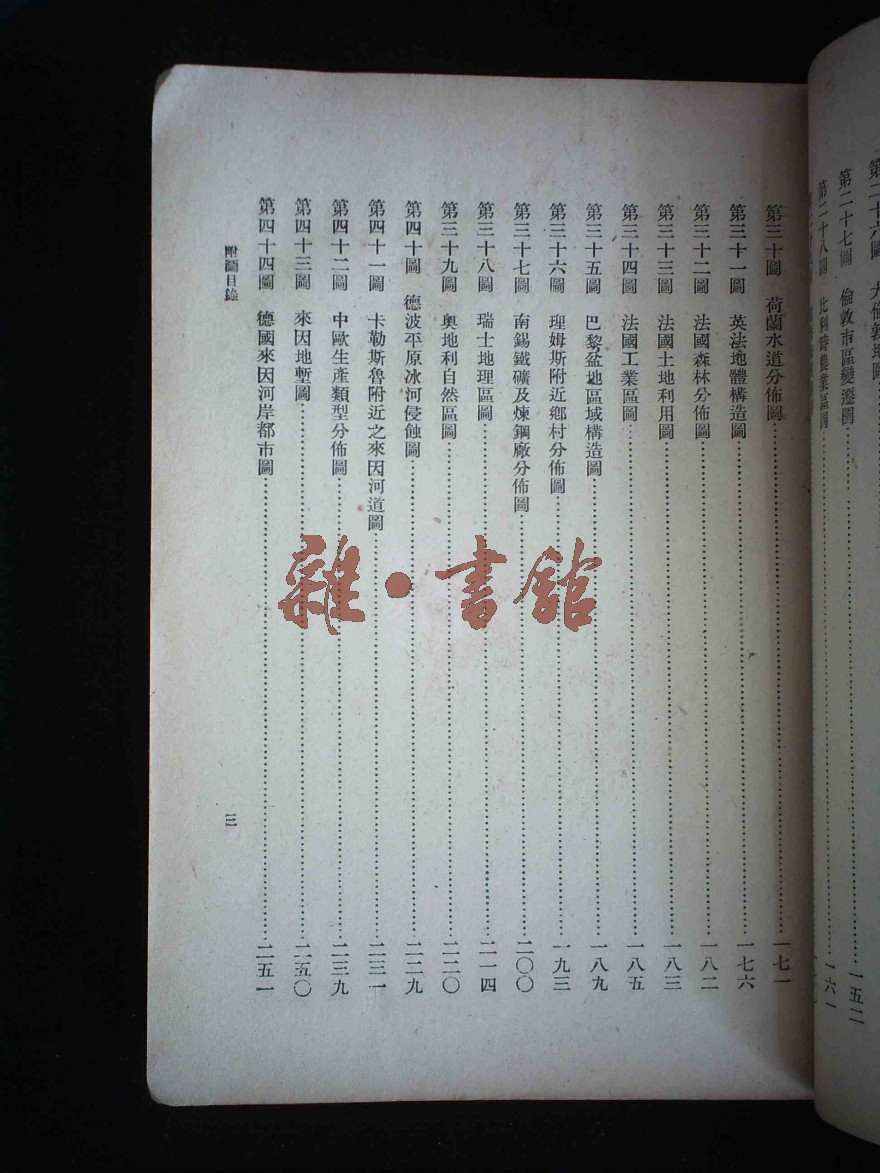 第二十六圖　大倫敦地圖
第二十七圖　倫敦市區變遷圖……一五二
第二十八圖　比利時農業區圖……一六一
第三十圖　荷蘭水道分佈圖……一七一
第三十一圖　英法地體構造圖……一七六
第三十二圖　法國森林分佈圖……一八二
第三十三圖　法國土地利用圖……一八三
第三十四圖　法國工業區圖……一八五
第三十五圖　巴黎盆地區域構造圖……一八九
第三十六圖　理姆斯附近鄉村分佈圖……一九三
第三十七圖　南錫鐵礦及煉鋼廠分佈圖……二〇〇
第三十八圖　瑞士地理區圖……二一四
第三十九圖　奧地利自然區圖……二二〇
第四十圖　德波平原冰河侵蝕圖……二二九
第四十一圖　卡勒斯魯附近之來因河道圖……二三一
第四十二圖　中歐生產類型分佈圖……二三九
第四十三圖　來因地塹圖……二五〇
第四十四圖　德國來因河岸都市圖……二五一
附圖目錄　三
雜·書館